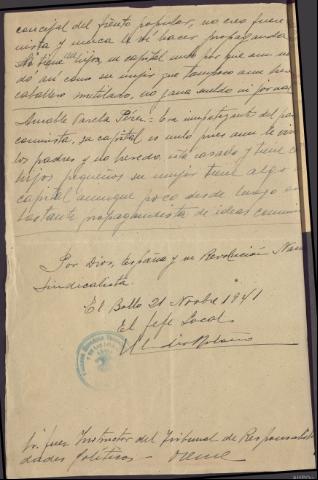 concejal del frente popular, no creo fuera
nista y nunca le dé hacer propaganda
tiene un hijo, su capital nulo por que aun no
dó así como su mujer que tampoco aun he
caballero mutilado, no gana sueldo ni jornal
Amable Varela Pérez = Era simpatizante del par
comunista, su capital es nulo pues aun le viven
los padres y no heredó, está casado y tiene
hijos pequeños su mujer tiene algo
capital aunque poco desde luego
bastante propagandista de ideas comuni
Por Dios, España y su Revolución Naci
Sindicalista.
El Bollo 21 Novbre 1941
El Jefe Local
Sr. Juez Instructor del Tribunal de Responsabili
dades Políticas – Orense